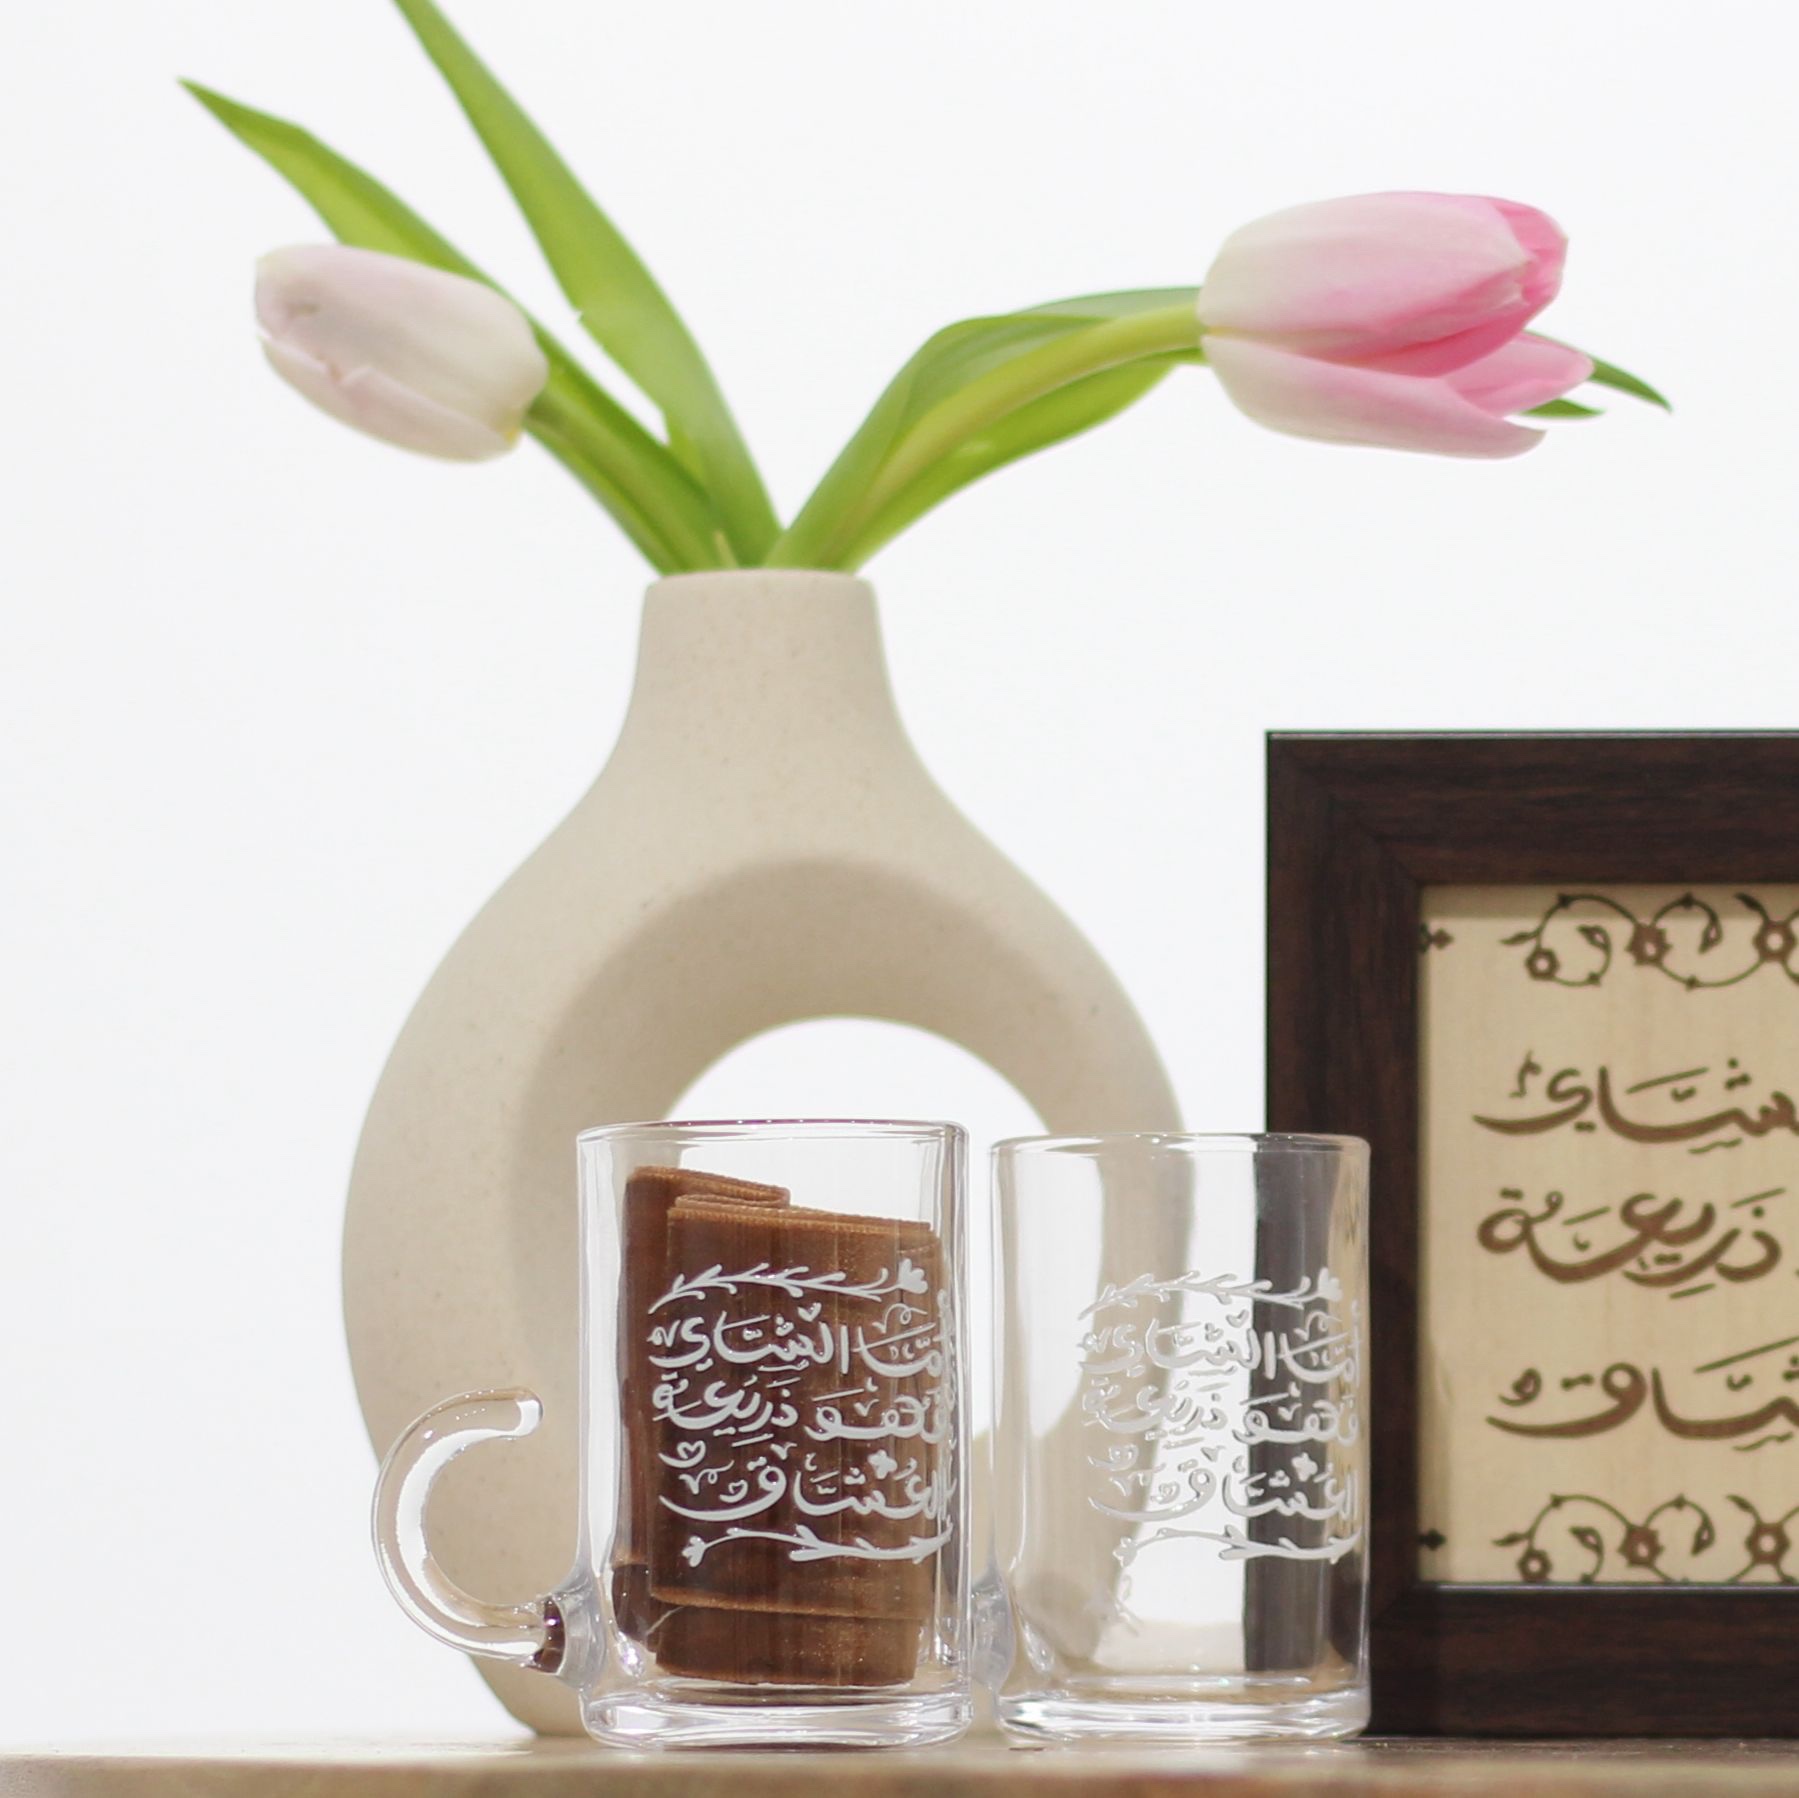 أَمَّا الشَّاي
فَهوَ ذَرِيعَة
العُشَّاق
أَمَّا الشَّاي
فَهوَ ذَرِيعَة
العُشَّاق
ذَرِيعَة